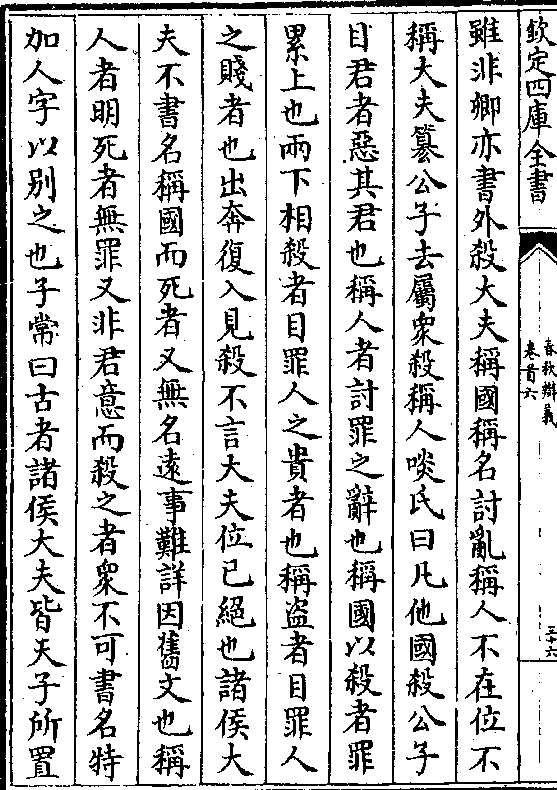 欽定四庫全書
春秋辯義
卷首六
三十六
雖非卿亦書外殺大夫稱國稱名討亂稱人不在位不
稱大夫篡公子去屬衆殺稱人啖氏曰凡他國殺公子
目君者惡其君也稱人者討罪之辭也稱國以殺者罪
累上也兩下相殺者目罪人之貴者也稱盗者目罪人
之賤者也出奔復入見殺不言大夫位已絕也諸侯大
夫不書名稱國而死者又無名遠事難詳因舊文也稱
人者明死者無罪又非君意而殺之者衆不可書名特
加人字以别之也子常曰古者諸侯大夫皆天子所置